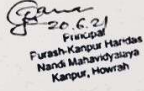 20.6.21
Principal
Furash-Kanpur Haridas
Nandi Mahavidyalaya
Kanpur, Howrah